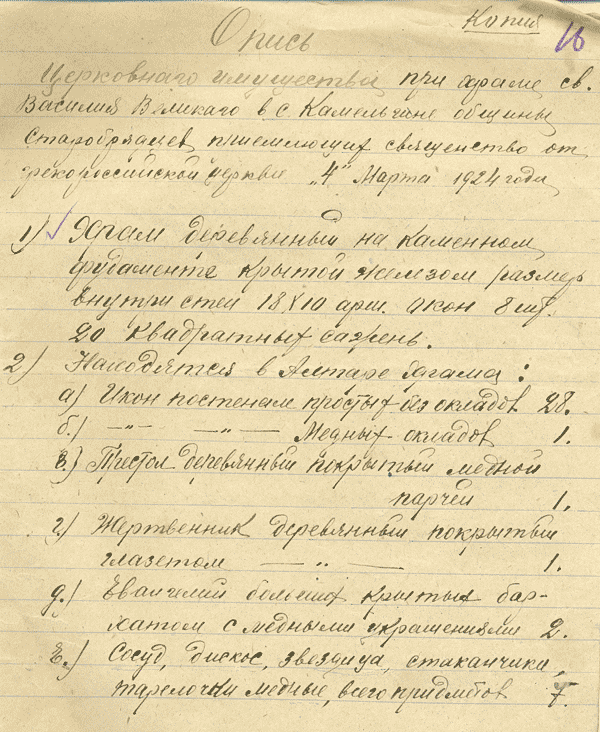 Копия
16
Опись
Церковнаго имущества при храме св.
Василия Великаго в с. Камельчине общины
старобрядцев приемлющих священство от
грекороссийской церкви „4" Марта 1924 года
1) Храм деревянный на каменном
фундаменте крытой железом размер
внутри стен 18х10 арш. Окон 8 шт.
20 квадратных сажень.
2) Находятся в Алтаре храма:
а) Икон по стенам простых без окладов 28.
б.) —"— —"— Медных окладов 1.
в.) Престол деревянный покрытый медной
парчей 1.
г.) Жертвенник деревянный покрытый
глазетом —"— 1.
д.) Евангелий больших крытых бар-
хатом с медными украшениями 2.
Е.) Сосуд, дискос, звездица, стаканчики,
тарелочки медные, всего придметов 7.